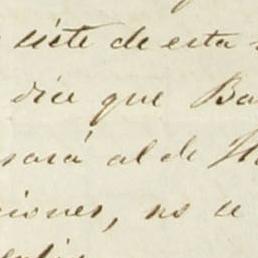 siete de esta
dice que Ba
sará al de
ciones, no se